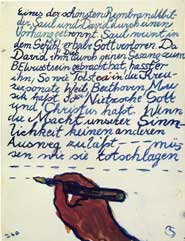 Eines der schönsten Rembrandtbil-
der Saul und David durch einen
Vorhang getrennt. Saul weint in
dem Gefühl, er habe Gott verloren. Da
David, ihm durch seinen Gesang zum
Bewusstsein gebracht hat, hasst er
ihn, So wie Tolstoi in die Kreu-
zersonate Weib Beethoven Mu-
sik hasst, oder Nietzsche Gott
und Christus hasst. Wenn
die Macht unserer Sinn-
lichkeit keinen anderen
Ausweg zulässt - - - müs
sen wir sie totschlagen